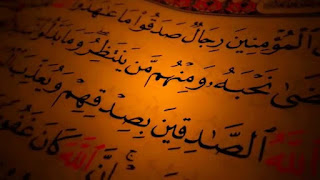 ٱلْمُؤْمِنِينَ رِجَالٌ صَدَقُوا۟ مَا عَٰهَدُوا۟
نَحْبَهُۥ وَمِنْهُم مَّن يَنتَظِرُ وَمَا بَدَّلُوا۟
ٱلصَّٰدِقِينَ بِصِدْقِهِمْ وَيُعَذِّبَ
ٱللَّهَ كَانَ غَفُو